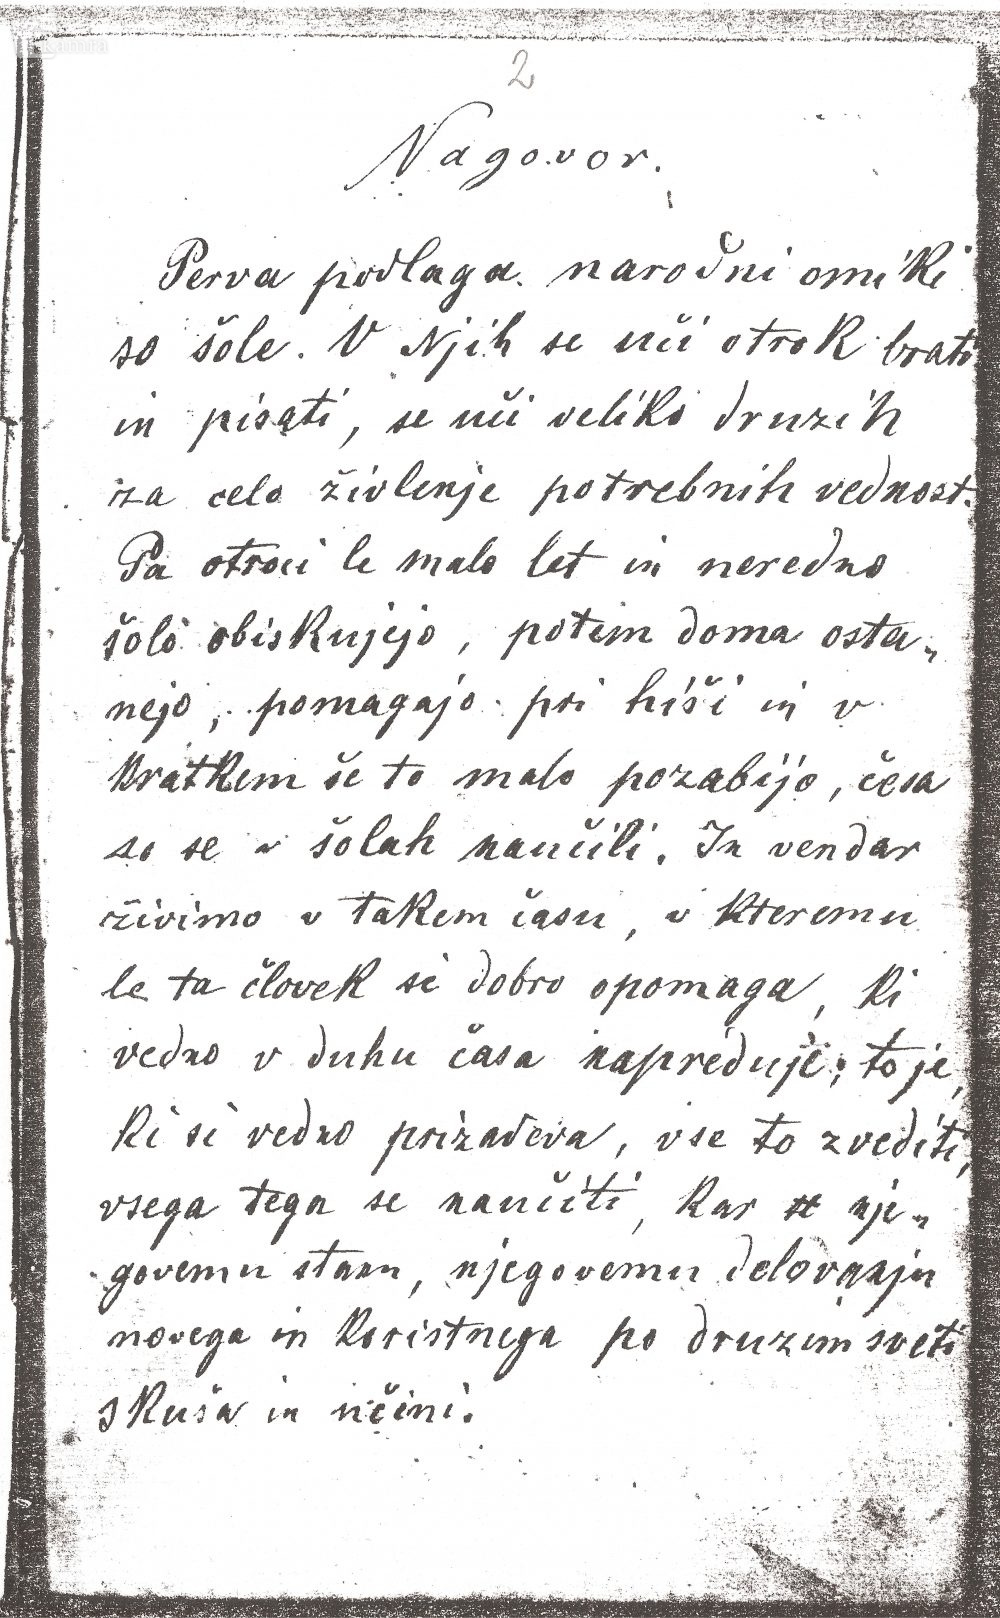 2
Nagovor.
Perva podlaga narodni omiki
so šole. V njih se uči otrok brati
in pisati, se uči veliko druzih
za celo živlenje potrebnih vednost.
Pa otroci le malo let in neredno
šolo obiskujejo, potem doma osta„
nejo, pomagajo pri hiši in v
kratkem še to malo pozabijo, česa
so se v šolah naučili. In vendar
živimo v takem času, v kteremu
le ta človek si dobro opomaga, ki
vedno v duhu časa napreduje; to je,
ki si vedno prizadeva, vse to zvediti,
vsega tega se naučiti, kar nje„
govemu stanu, njegovemu delovanju
novega in koristnega po druzim sveti
skuša in učini.